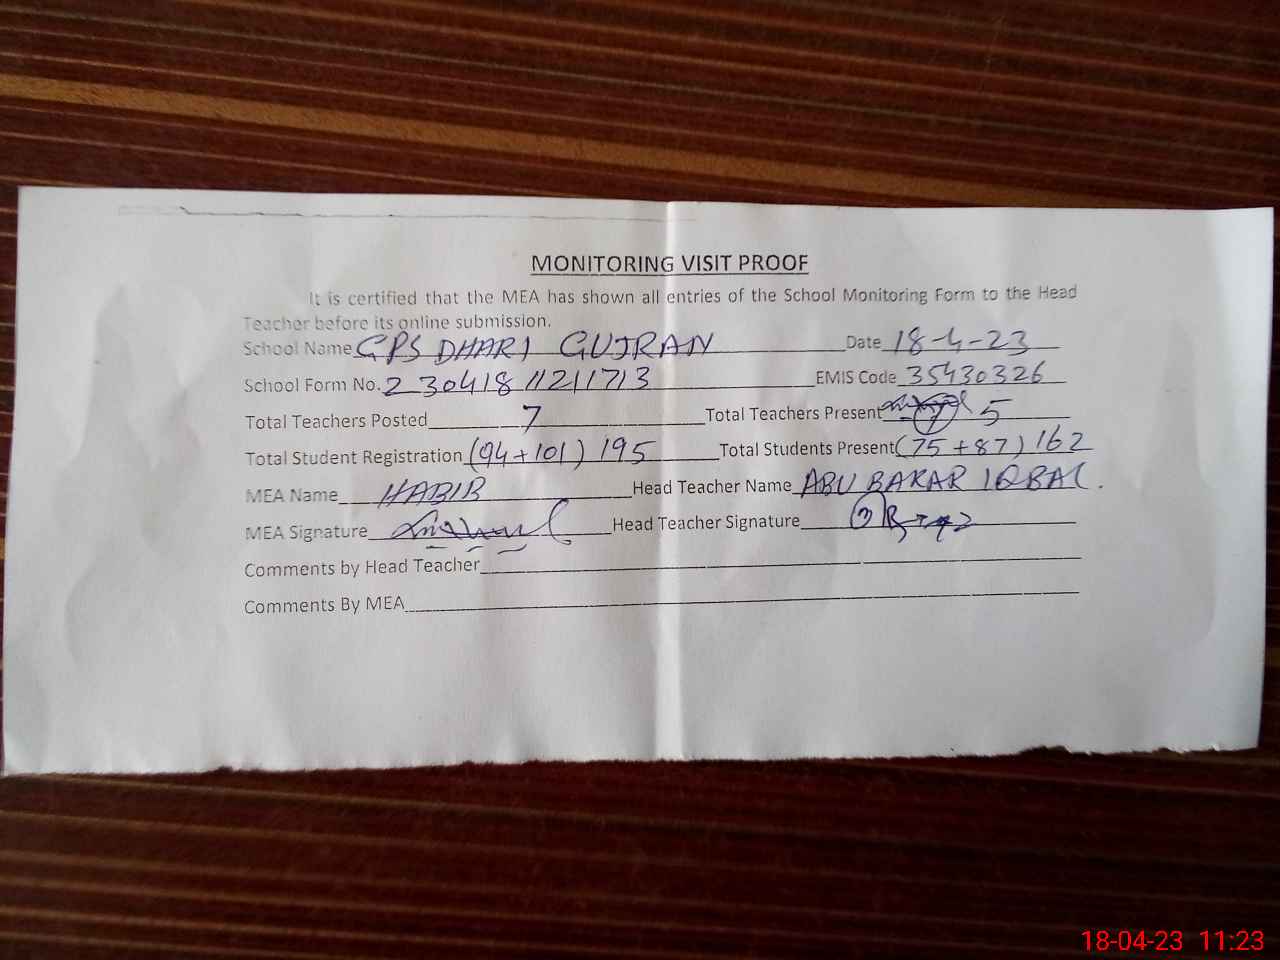 MONITORING VISIT PROOF
It is certified that the MEA has shown all entries of the School Monitoring Form to the Head
Teacher before its online submission.
School Name GPS DHARI GUJRAN Date 18-4-23
School Form No. 23041811211713 EMIS Code 35430326
Total Teachers Posted 7 Total Teachers Present 5
Total Student Registration (94+101) 195 Total Students Present (75+87) 162
MEA Name HABIB Head Teacher Name ABU BAKAR IQBAL.
MEA Signature Head Teacher Signature
Comments by Head Teacher
Comments By MEA
18-04-23 11:23